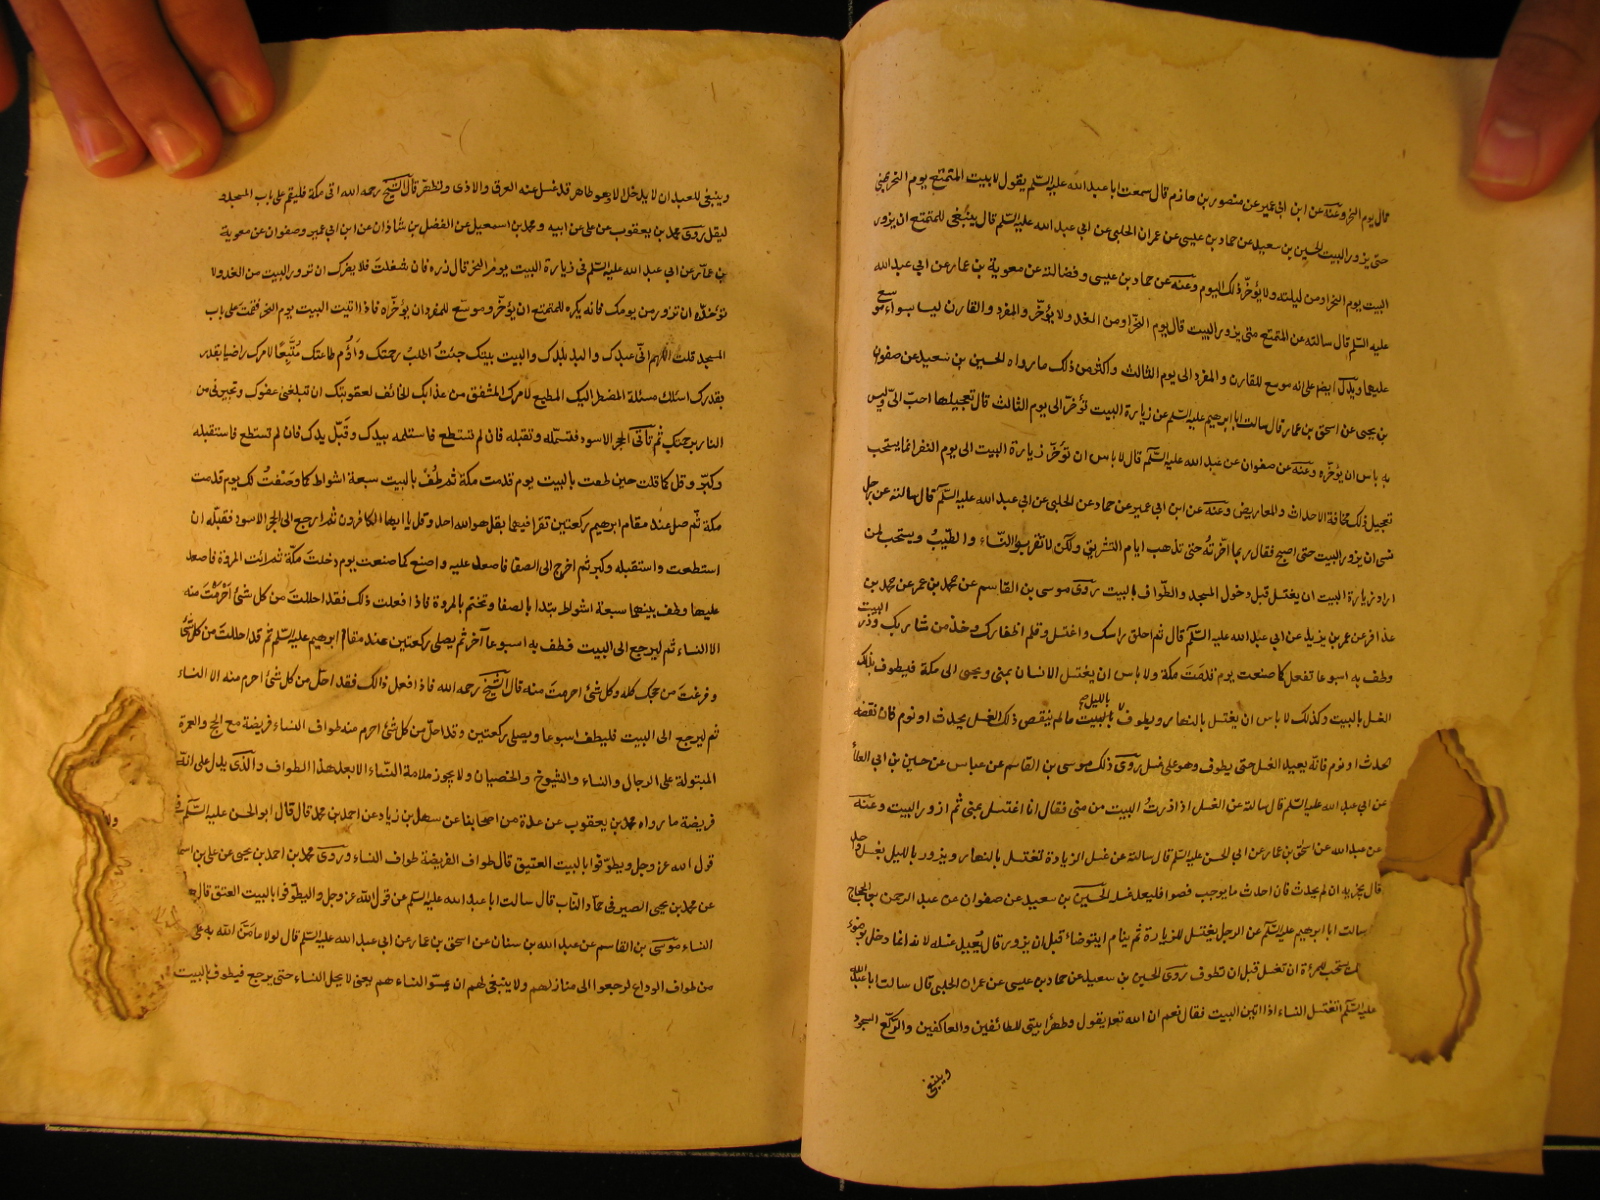 قال يوم النحر وعنه عن ابن ابي عمير عن منصور بن حازم قال سمعت ابا عبد الله عليه السلم يقول لا يبيت المتمتع يوم النحر بمنى
حتى يزور البيت الحسين بن سعيد عن حماد بن عيسى عن عمران الحلبي عن ابي عبد الله عليه السلم قال ينبغي للمتمتع ان يزور
البيت يوم النحر او من ليلته ولا يؤخر ذلك اليوم وعنه عن حماد بن عيسى وفضالة عن معوية بن عمار عن ابي عبد الله
عليه السلم قال سالته عن المتمتع متى يزور البيت قال يوم النحر او من الغد ولا يؤخر والمفرد والقارن ليسا بسواء موسع
عليهما ويدل ايضا على انه موسع للقارن والمفرد الى يوم الثالث واكثر من ذلك ما رواه الحسين بن سعيد عن صفوان
بن يحيى عن اسحق بن عمار قال سالت ابا ابرهيم عليه السلم عن زيارة البيت تؤخر الى يوم الثالث قال تعجيلها احب الى وليس
به باس ان يؤخره وعنه عن صفوان عن عبد الله عليه السلم قال لا باس ان تؤخر زيارة البيت الى يوم النفر انما يستحب
تعجيل ذلك مخافة الاحداث والمعاريض وعنه عن ابن ابي عمير عن حماد عن الحلبي عن ابي عبد الله عليه السلم قال سالته عن رجل
نسى ان يزور البيت حتى اصبح فقال ربما اخرته حتى تذهب ايام التشريق ولكن لا تقربوا النساء والطيب ويستحب لمن
اراد زيارة البيت ان يغتسل قبل دخول المسجد والطواف بالبيت روى موسى بن القاسم عن محمد بن عمر عن محمد بن
عذافر عن عمر بن يزيد عن ابي عبد الله عليه السلم قال ثم احلق راسك واغتسل وقلم اظفارك وخذ من شاربك وزر البيت
وطف به اسبوعا تفعل كما صنعت يوم قدمت مكة ولا باس ان يغتسل الانسان بمنى ويجيى الى مكة فيطوف بذلك
الغسل بالبيت وكذلك لا باس ان يغتسل بالنهار ويطوف بالبيت بالليل ما لم ينقص ذلك الغسل بحدث او نوم فان نقضه
بحدث او نوم فانه يعيد الغسل حتى يطوف وهو على غسل روى ذلك موسى بن القاسم عن عباس عن حسين بن ابي العلا
عن ابي عبد الله عليه السلم قال سالته عن الغسل اذا زرت البيت من منى فقال انا اغتسل بمنى ثم ازور البيت وعنه
عن عبد الله عن اسحق بن عمار عن ابي الحسن عليه السلم قال سالته عن غسل الزيارة تغتسل بالنهار ويزور بالليل بغسل واحد
قال يجزيه ان لم يحدث فان احدث ما يوجب فليعد غسله الحسين بن سعيد عن صفوان عن عبد الرحمن بن الحجاج
سالت ابا ابرهيم عليه السلم عن الرجل يغتسل للزيارة ثم ينام ايتوضاء قبل ان يزور قال يعيد غسله لانه انما دخل بوضوء
يستحب للمرءة ان تغسل قبل ان تطوف روى الحسين بن سعيد عن حماد بن عيسى عن عمران الحلبي قال سالت ابا عبد الله
عليه السلم اتغتسل النساء اذا اتين البيت فقال نعم ان الله تعا يقول وطهرا بيتي للطائفين والعاكفين والركع السجود
وينبغي
وينبغي للعبد ان لا يدخل الا وهو طاهر قد غسل عنه العرق والاذى وتطهر قال الشيخ رحمه الله اتى مكة فليقم على باب المسجد و
ليقل روى محمد بن يعقوب عن على عن ابيه ومحمد بن اسمعيل عن الفضل بن شاذان عن ابن ابي عمير وصفوان عن معوية
بن عمار عن ابي عبد الله عليه السلم في زيارة البيت يوم النحر قال زره فان شغلت فلا يضرك ان تزور البيت من الغد ولا
تؤخره ان تزور من يومك فانه يكره للمتمتع ان يؤخر وموسع للمفرد ان يؤخره فاذا اتيت البيت يوم النحر فقمت على باب
المسجد قلت اللهم انى عبدك والبلد بلدك والبيت بيتك جئت اطلب رحمتك واؤم طاعتك متبعا لامرك راضيا بقدر
بقدرك اسئلك مسئلة المضطر اليك المطيع لامرك المشفق من عذابك الخائف لعقوبتك ان تبلغنى عفوك وتجيرنى من
النار برحمتك ثم تاتى الحجر الاسود فتستلمه وتقبله فان لم تستطع فاستلمه بيدك وقبل يدك فان لم تستطع فاستقبله
وكبر وقل كما قلت حين طفت بالبيت يوم قدمت مكة ثم طف بالبيت سبعة اشواط كما وصفت لك يوم قدمت
مكة ثم صل عند مقام ابرهيم ركعتين تقرا فيهما بقل هو الله احد وقل يا ايها الكافرون ثم ارجع الى الحجر الاسود فقبله ان
استطعت واستقبله وكبر ثم اخرج الى الصفا فاصعد عليه واصنع كما صنعت يوم دخلت مكة ثم ائت المروة فاصعد
عليها وطف بينهما سبعة اشواط تبدا بالصفا وتختم بالمروة فاذا فعلت ذلك فقد احللت من كل شئ احرمت منه
الا النساء ثم ليرجع الى البيت فطف به اسبوعا آخر ثم يصلى ركعتين عند مقام ابرهيم عليه السلم ثم قد احللت من كل شئ
وفرغت من حجك كله وكل شئ احرمت منه قال الشيخ رحمه الله فاذا فعل ذالك فقد احل من كل شئ احرم منه الا النساء
ثم ليرجع الى البيت فليطف اسبوعا ويصلى ركعتين وقد احل من كل شئ احرم منه طواف النساء فريضة مع الحج والعمرة
المبتولة على الرجال والنساء والشيوخ والخصيان ولا يجوز ملامة النساء الا بعد هذا الطواف والذى يدل على انه
فريضة ما رواه محمد بن يعقوب عن عدة من اصحابنا عن سهل بن زياد عن احمد بن محمد قال قال ابو الحسن عليه السلم في
قول الله عز وجل وليطوفوا بالبيت العتيق قال طواف الفريضة طواف النساء وروى محمد بن احمد بن يحيى عن على بن اسما
عن محمد بن يحيى الصيرفى عن حماد الناب قال سالت ابا عبد الله عليه السلم عن قول الله عز وجل وليطوفوا بالبيت العتيق قال
النساء موسى بن القاسم عن عبد الله بن سنان عن اسحق بن عمار عن ابي عبد الله عليه السلم قال لولا ما من الله به على
من طواف الوداع لرجعوا الى منازلهم ولا ينبغى لهم ان يمسوا النساء هم يعنى لا يحل النساء حتى يرجع فيطوف بالبيت